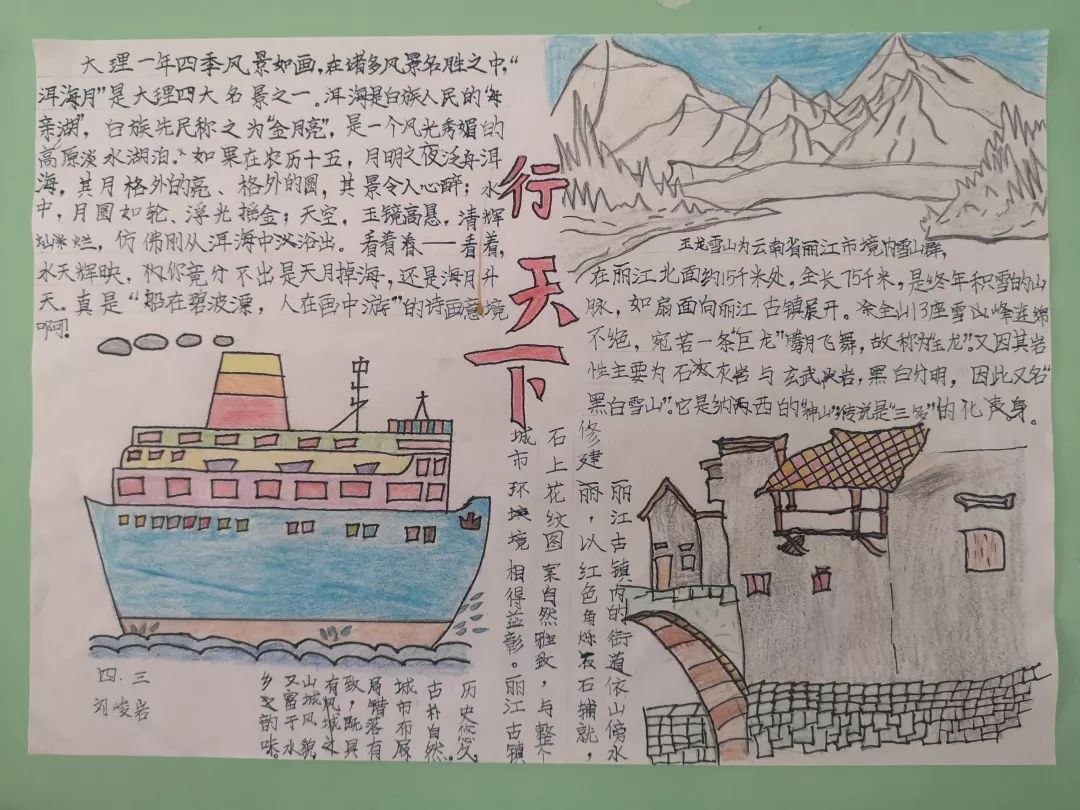 大理一年四季风景如画，在诸多风景名胜之中，“
洱海月”是大理四大名景之一。洱海是白族人民的“母
亲湖”，白族先民称之为“金月亮”，是一个风光秀媚的
高原淡水湖泊。如果在农历十五，月明之夜泛舟洱
海，其月格外的亮、格外的圆，其景令人心醉；水
中，月圆如轮、浮光摇金；天空，玉镜高悬，清辉
灿烂，仿佛刚从洱海中浴出。看着看——看着，
水天辉映，你竟分不出是天月掉海，还是海月升
天。真是“船在碧波漂，人在画中游”的诗画意境
啊！
行天下
玉龙雪山为云南省丽江市境内雪山群，
在丽江北面约15千米处，全长75千米，是终年积雪的山
脉，如扇面向丽江古镇展开。全山13座雪山峰连绵
不绝，宛若一条“巨龙”腾月飞舞，故称为“玉龙”。又因其岩
性主要为石灰岩与玄武岩，黑白分明，因此又名“
黑白雪山”。它是纳西的“神山”，传说是“三多”的化身。
丽江古镇内的街道依山傍水
修建丽，以红色角烁石铺就，
石上花纹图案自然雅致，与整个
城市环境相得益彰。丽江古镇
历史悠久，
古朴自然，
城市布展
局错落有
致，既具
有风城之
山城风貌，
又富于水
乡之韵味。
四.三
刘峻岩